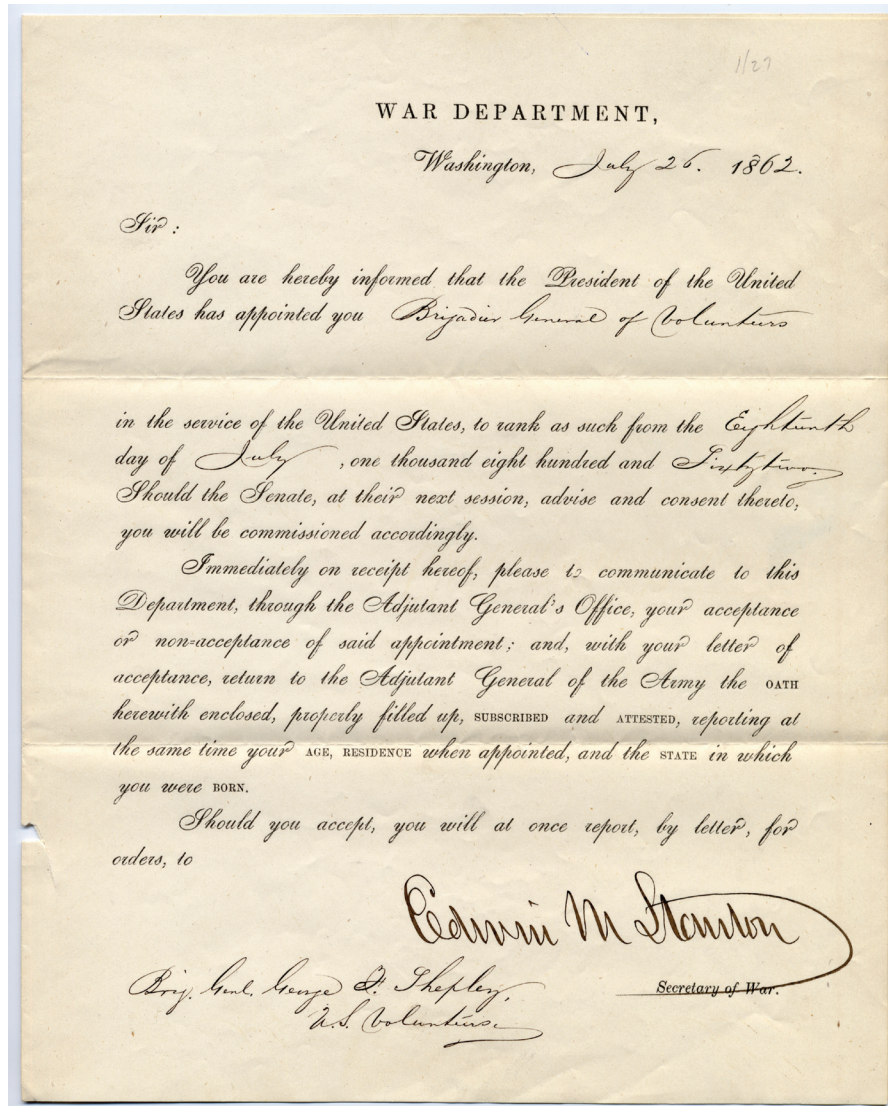 1/27
WAR DEPARTMENT,
Washington, July 26. 1862.
Sir:
You are hereby informed that the President of the United
States has appointed you Brigadier General of Volunteers
in the service of the United States, to rank as such from the Eighteenth
day of July, one thousand eight hundred and Sixtytwo.
Should the Senate, at their next session, advise and consent thereto,
you will be commissioned accordingly.
Immediately on receipt hereof, please to communicate to this
Department, through the Adjutant General's Office, your acceptance
or non-acceptance of said appointment; and, with your letter of
acceptance, return to the Adjutant General of the Army the OATH
herewith enclosed, properly filled up, SUBSCRIBED and ATTESTED, reporting at
the same time your AGE, RESIDENCE when appointed, and the STATE in which
you were BORN.
Should you accept, you will at once report, by letter, for
orders, to
Edwin M Stanton
Secretary of War.
Brig. Genl. George F. Shepley,
U.S. Volunteers.